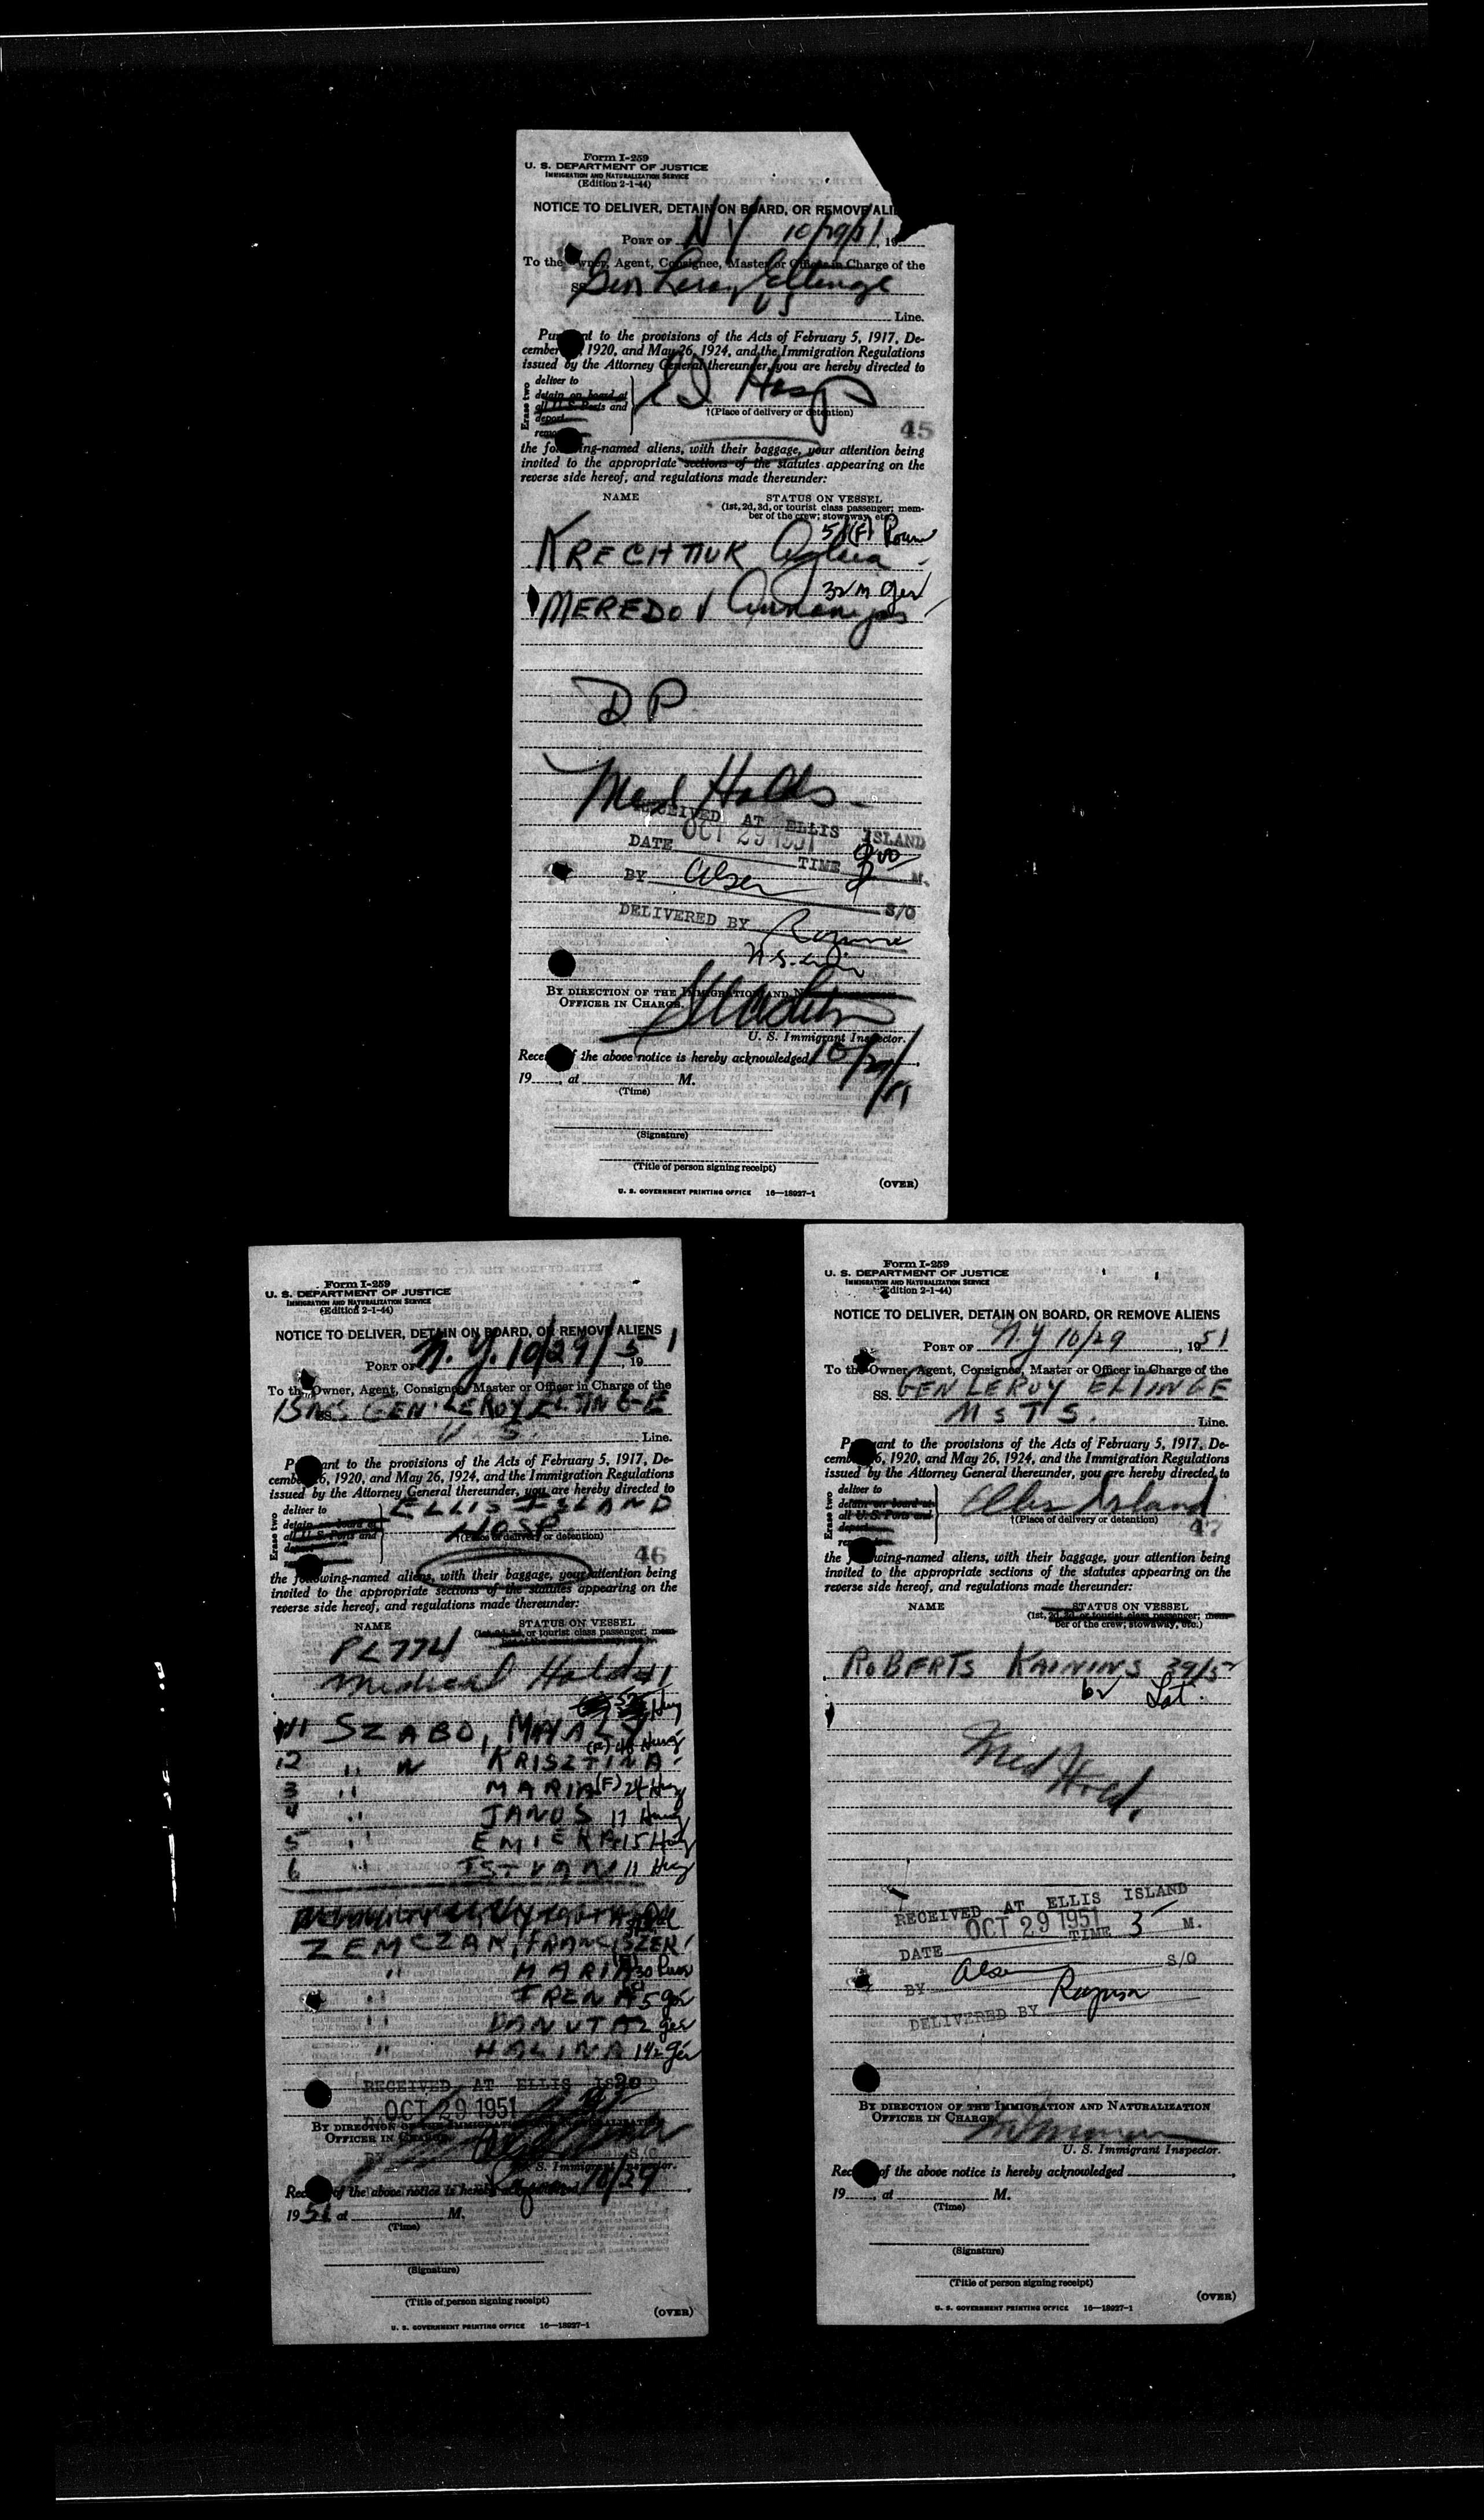 Form I-259
U. S. DEPARTMENT OF JUSTICE
IMMIGRATION AND NATURALIZATION SERVICE
(Edition 2-1-44)
NOTICE TO DELIVER, DETAIN ON BOARD, OR REMOVE ALI
PORT OF N Y 10/29/51, 19
To the Owner, Agent, Consignee, Master or Officer in Charge of the
SS Gen Leroy Eltinge
US Line.
Pursuant to the provisions of the Acts of February 5, 1917, De-
cember 1920, and May 26, 1924, and the Immigration Regulations
issued by the Attorney General thereunder, you are hereby directed to
Erase two
deliver to
detain on board at
all U. S. Ports and
deport
remo
Hosp
†(Place of delivery or detention)
45
the following-named aliens, with their baggage, your attention being
invited to the appropriate sections of the statutes appearing on the
reverse side hereof, and regulations made thereunder:
NAME STATUS ON VESSEL
(1st, 2d, 3d, or tourist class passenger; mem-
ber of the crew; stowaway, etc.)
(F) Roum
KRECHTIUK
32 m Ger
MEREDOV
D P
Med Holds
RECEIVED AT ELLIS ISLAND
DATE OCT 29 1951 TIME M.
BY Olsen S/O
DELIVERED BY
BY DIRECTION OF THE IMMIGRATION AND N
OFFICER IN CHARGE.
U. S. Immigrant Inspector.
Receipt of the above notice is hereby acknowledged 10/29/51
19 , at M.
(Time)
(Signature)
(Title of person signing receipt)
(OVER)
U. S. GOVERNMENT PRINTING OFFICE 16—18927-1
Form I-259
U. S. DEPARTMENT OF JUSTICE
IMMIGRATION AND NATURALIZATION SERVICE
(Edition 2-1-44)
NOTICE TO DELIVER, DETAIN ON BOARD, OR REMOVE ALIENS
PORT OF N. Y. 10/29/51, 19
To the Owner, Agent, Consignee, Master or Officer in Charge of the
SS. GEN. LEROY ELTINGE
U. S. Line.
Pursuant to the provisions of the Acts of February 5, 1917, De-
cember 6, 1920, and May 26, 1924, and the Immigration Regulations
issued by the Attorney General thereunder, you are hereby directed to
Erase two
deliver to
detain on board at
all U. S. Ports and
ELLIS ISLAND
HOSP
†(Place of delivery or detention)
46
the following-named aliens, with their baggage, your attention being
invited to the appropriate sections of the statutes appearing on the
reverse side hereof, and regulations made thereunder:
NAME STATUS ON VESSEL
or tourist class passenger; mem-
PL774
Medical Hold
11 SZABO, MIHALY Hung
12 " W KRISZTINA (F) 46 Hung
3 " MARIA (F) 24 Hung
4 " JANOS 17 Hung
5 " 15 Hung
6 " ISTVAN 11 Hung
ZEMCZAK, FRANCISZEK
" MARIA 30
" IRENA 5 Ger
" DANUTA 2 Ger
" HALINA Ger
RECEIVED AT ELLIS ISLAND
OCT 29 1951
BY DIRECTION OF THE IMMIGRATION AND NATURALIZATION
OFFICER IN CHARGE.
U. S. Immigrant Inspector.
Receipt of the above notice is hereby acknowledged 10/29
1951 at M.
(Time)
(Signature)
(Title of person signing receipt)
(OVER)
U. S. GOVERNMENT PRINTING OFFICE 16—18927-1
Form I-259
U. S. DEPARTMENT OF JUSTICE
IMMIGRATION AND NATURALIZATION SERVICE
(Edition 2-1-44)
NOTICE TO DELIVER, DETAIN ON BOARD, OR REMOVE ALIENS
PORT OF N.Y 10/29, 1951
To the Owner, Agent, Consignee, Master or Officer in Charge of the
SS. GEN LEROY ELTINGE
M S T S. Line.
Pursuant to the provisions of the Acts of February 5, 1917, De-
cember 6, 1920, and May 26, 1924, and the Immigration Regulations
issued by the Attorney General thereunder, you are hereby directed to
Erase two
deliver to
detain on board at
all U. S. Ports and
deport
Ellis Island
†(Place of delivery or detention)
47
the following-named aliens, with their baggage, your attention being
invited to the appropriate sections of the statutes appearing on the
reverse side hereof, and regulations made thereunder:
NAME STATUS ON VESSEL
(1st, 2d, 3d, or tourist class passenger; mem-
ber of the crew; stowaway, etc.)
ROBERTS KAININS
Lat.
Med Hold.
RECEIVED AT ELLIS ISLAND
DATE OCT 29 1951 TIME 3 M.
BY Olsen S/O
DELIVERED BY Ragusa
BY DIRECTION OF THE IMMIGRATION AND NATURALIZATION
OFFICER IN CHARGE
U. S. Immigrant Inspector.
Receipt of the above notice is hereby acknowledged
19 , at M.
(Time)
(Signature)
(Title of person signing receipt)
(OVER)
U. S. GOVERNMENT PRINTING OFFICE 16—18927-1